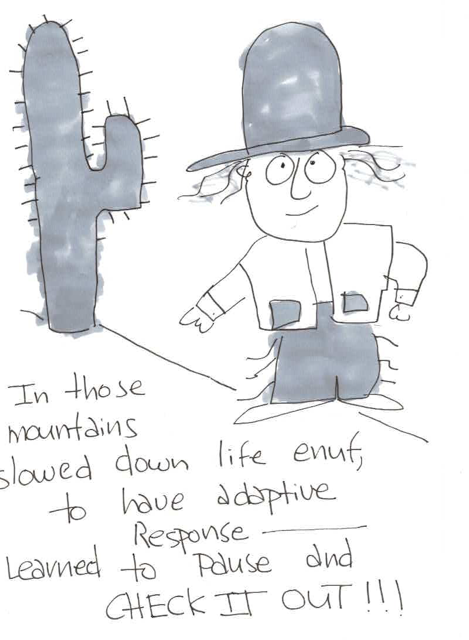 In those
mountains
slowed down life enuf,
to have adaptive
Response
Learned to Pause and
CHECK IT OUT!!!